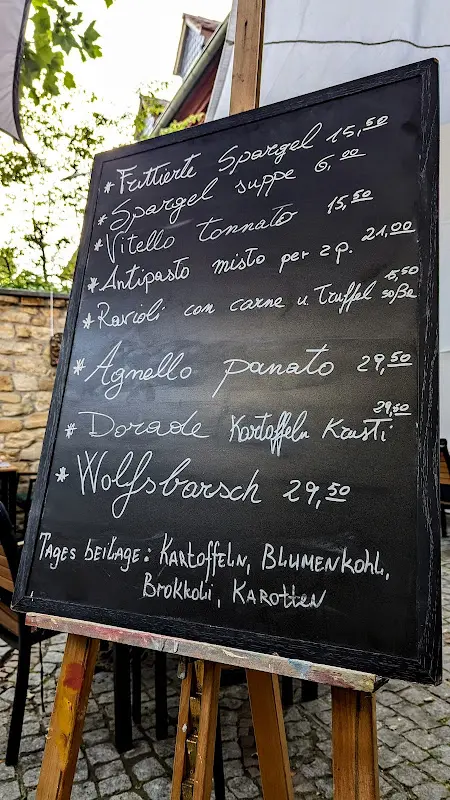 * Frittierte Spargel 15,50
* Spargel suppe 6,00
* Vitello tonnato 15,50
* Antipasto misto per 2 p. 21,00
* Ravioli con carne u. Trüffel soße 15,50
* Agnello panato 29,50
* Dorade Kartoffeln Krusti 29,50
* Wolfsbarsch 29,50
Tages beilage: Kartoffeln, Blumenkohl,
Brokkoli, Karotten